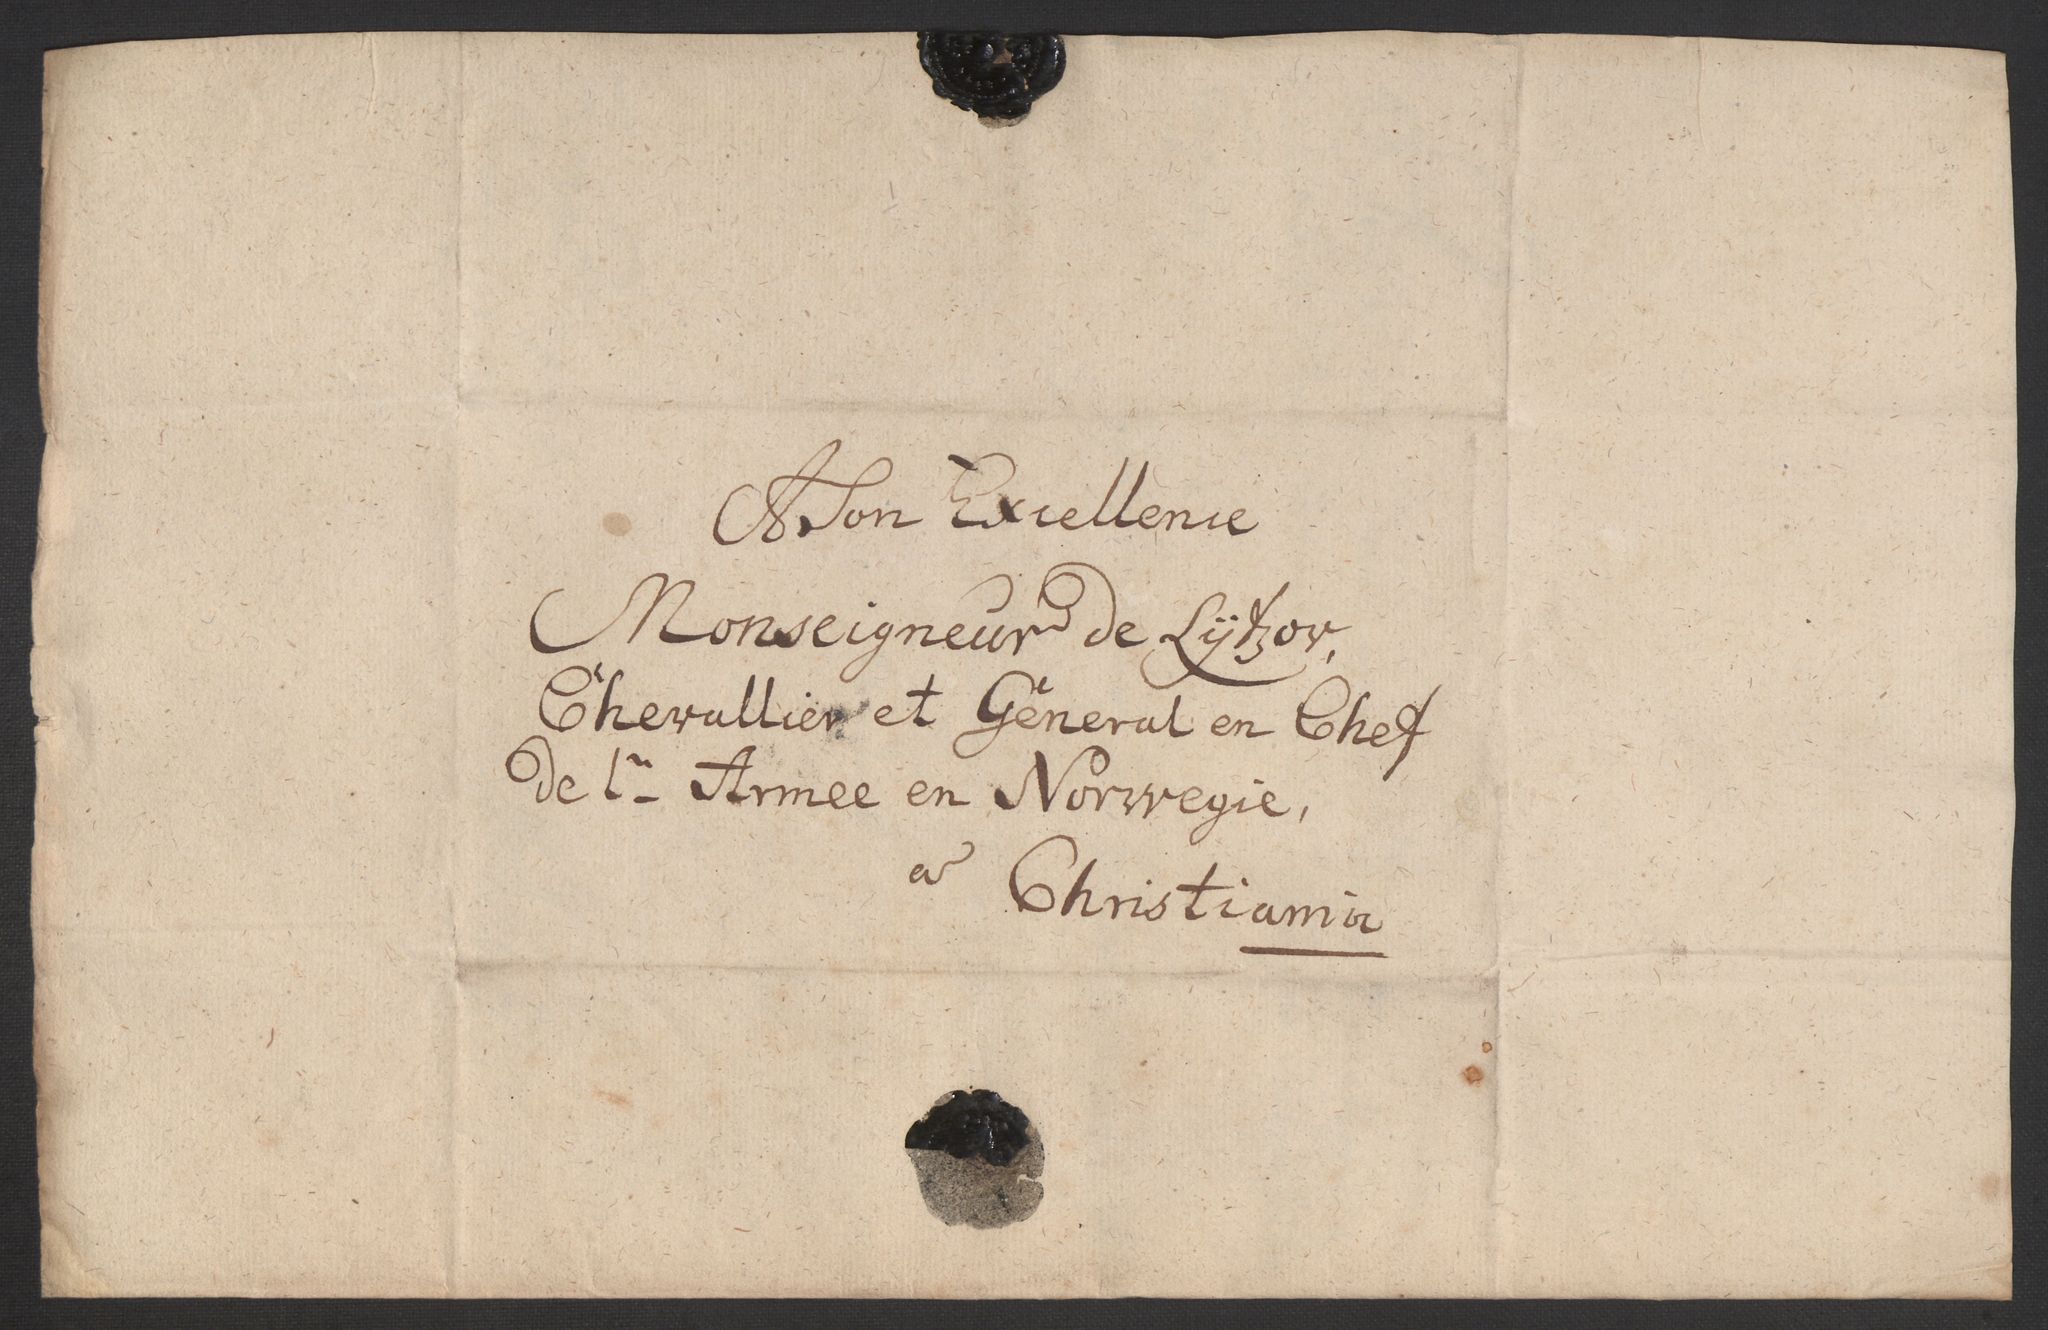 A Son Excellence
Monseigneur de Lÿtzow,
Chevallier et General en Chef
de l'u Armee en Norwegie,
a Christiania